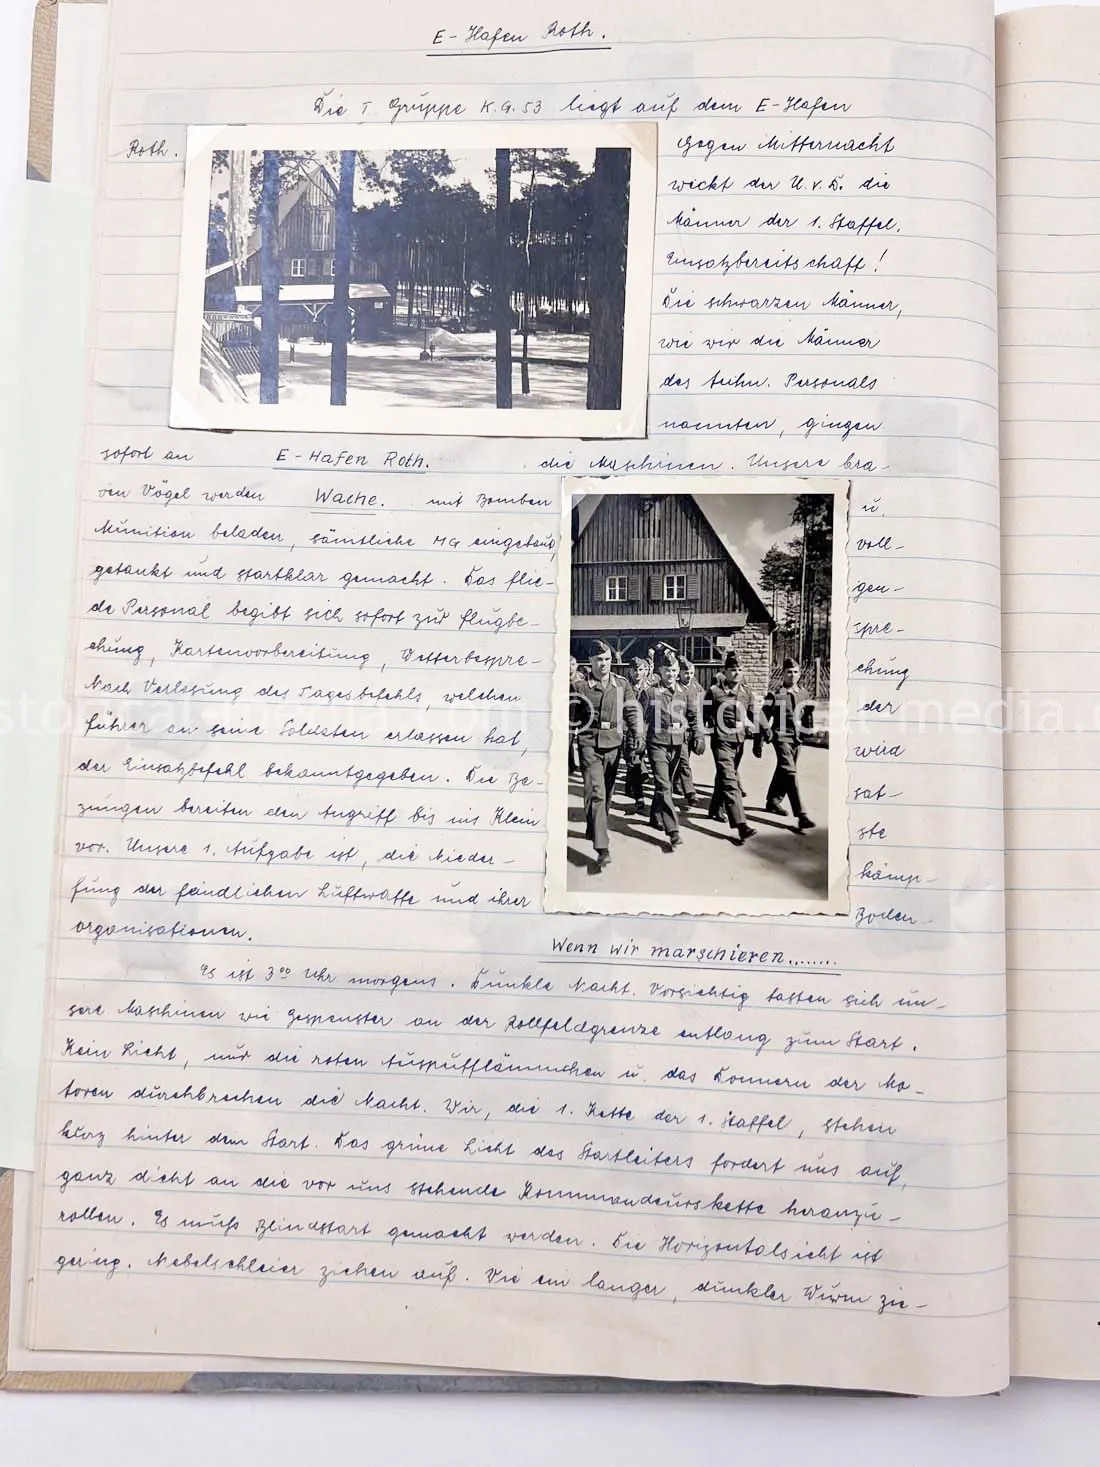 E-Hafen Roth.
Die I. Gruppe K.G. 53 liegt auf dem E-Hafen
Roth. Gegen Mitternacht
weckt der U.v.D. die
Männer der 1. Staffel.
Einsatzbereitschaft!
Die schwarzen Männer,
wie wir die Männer
des techn. Personals
nannten, gingen
sofort an die Maschinen. Unsere bra-
E-Hafen Roth.
ven Vögel werden mit Bomben u.
Wache.
Munition beladen, sämtliche MG eingebaut, voll-
getankt und startklar gemacht. Das flie- gen-
de Personal begibt sich sofort zur Flugbe- spre-
chung, Kartenvorbereitung, Wetterbespre- chung
Nach Verlesung des Tagesbefehls, welchen der
Führer an seine Soldaten erlassen hat, wird
der Einsatzbefehl bekanntgegeben. Die Be- sat-
zungen bereiten den Angriff bis ins Klein ste
vor. Unsere 1. Aufgabe ist, die Nieder- kämp-
fung der feindlichen Luftwaffe und ihrer Boden-
organisationen.
Wenn wir marschieren.......
Es ist 3⁰⁰ Uhr morgens. Dunkle Nacht. Vorsichtig tasten sich un-
sere Maschinen wie Gespenster an der Rollfeldgrenze entlang zum Start.
Kein Licht, nur die roten Auspufflämmchen u. das Donnern der Mo-
toren durchbrechen die Nacht. Wir, die 1. Kette der 1. Staffel, stehen
kurz hinter dem Start. Das grüne Licht des Startleiters fordert uns auf,
ganz dicht an die vor uns stehende Kommandeurskette heranzu-
rollen. Es muß Blindstart gemacht werden. Die Horizontalsicht ist
gering. Nebelschleier ziehen auf. Wie ein langer, dunkler Wurm zie-
© historicalmedia